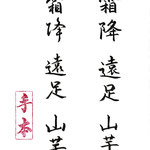 霜降 遠足 山芋
霜降 遠足 山芋
手本